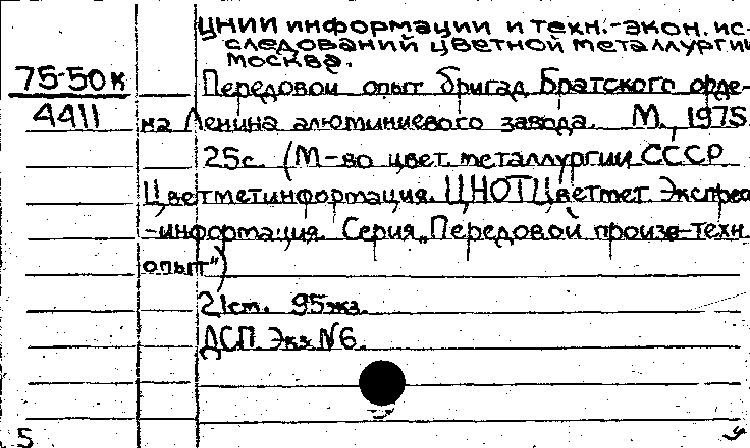 ЦНИИ информации и техн.-экон. ис-
следований цветной металлургии
Москва.
75-50к
4411
Передовой опыт бригад Братского орде-
на Ленина алюминиевого завода. М., 1975
25с. (М-во цвет. металлургии СССР
Цветметинформация. ЦНОТЦветмет. Экспрес
-информация. Серия „Передовой произв-техн
опыт")
21см. 95экз.
ДСП. Экз N6.
5